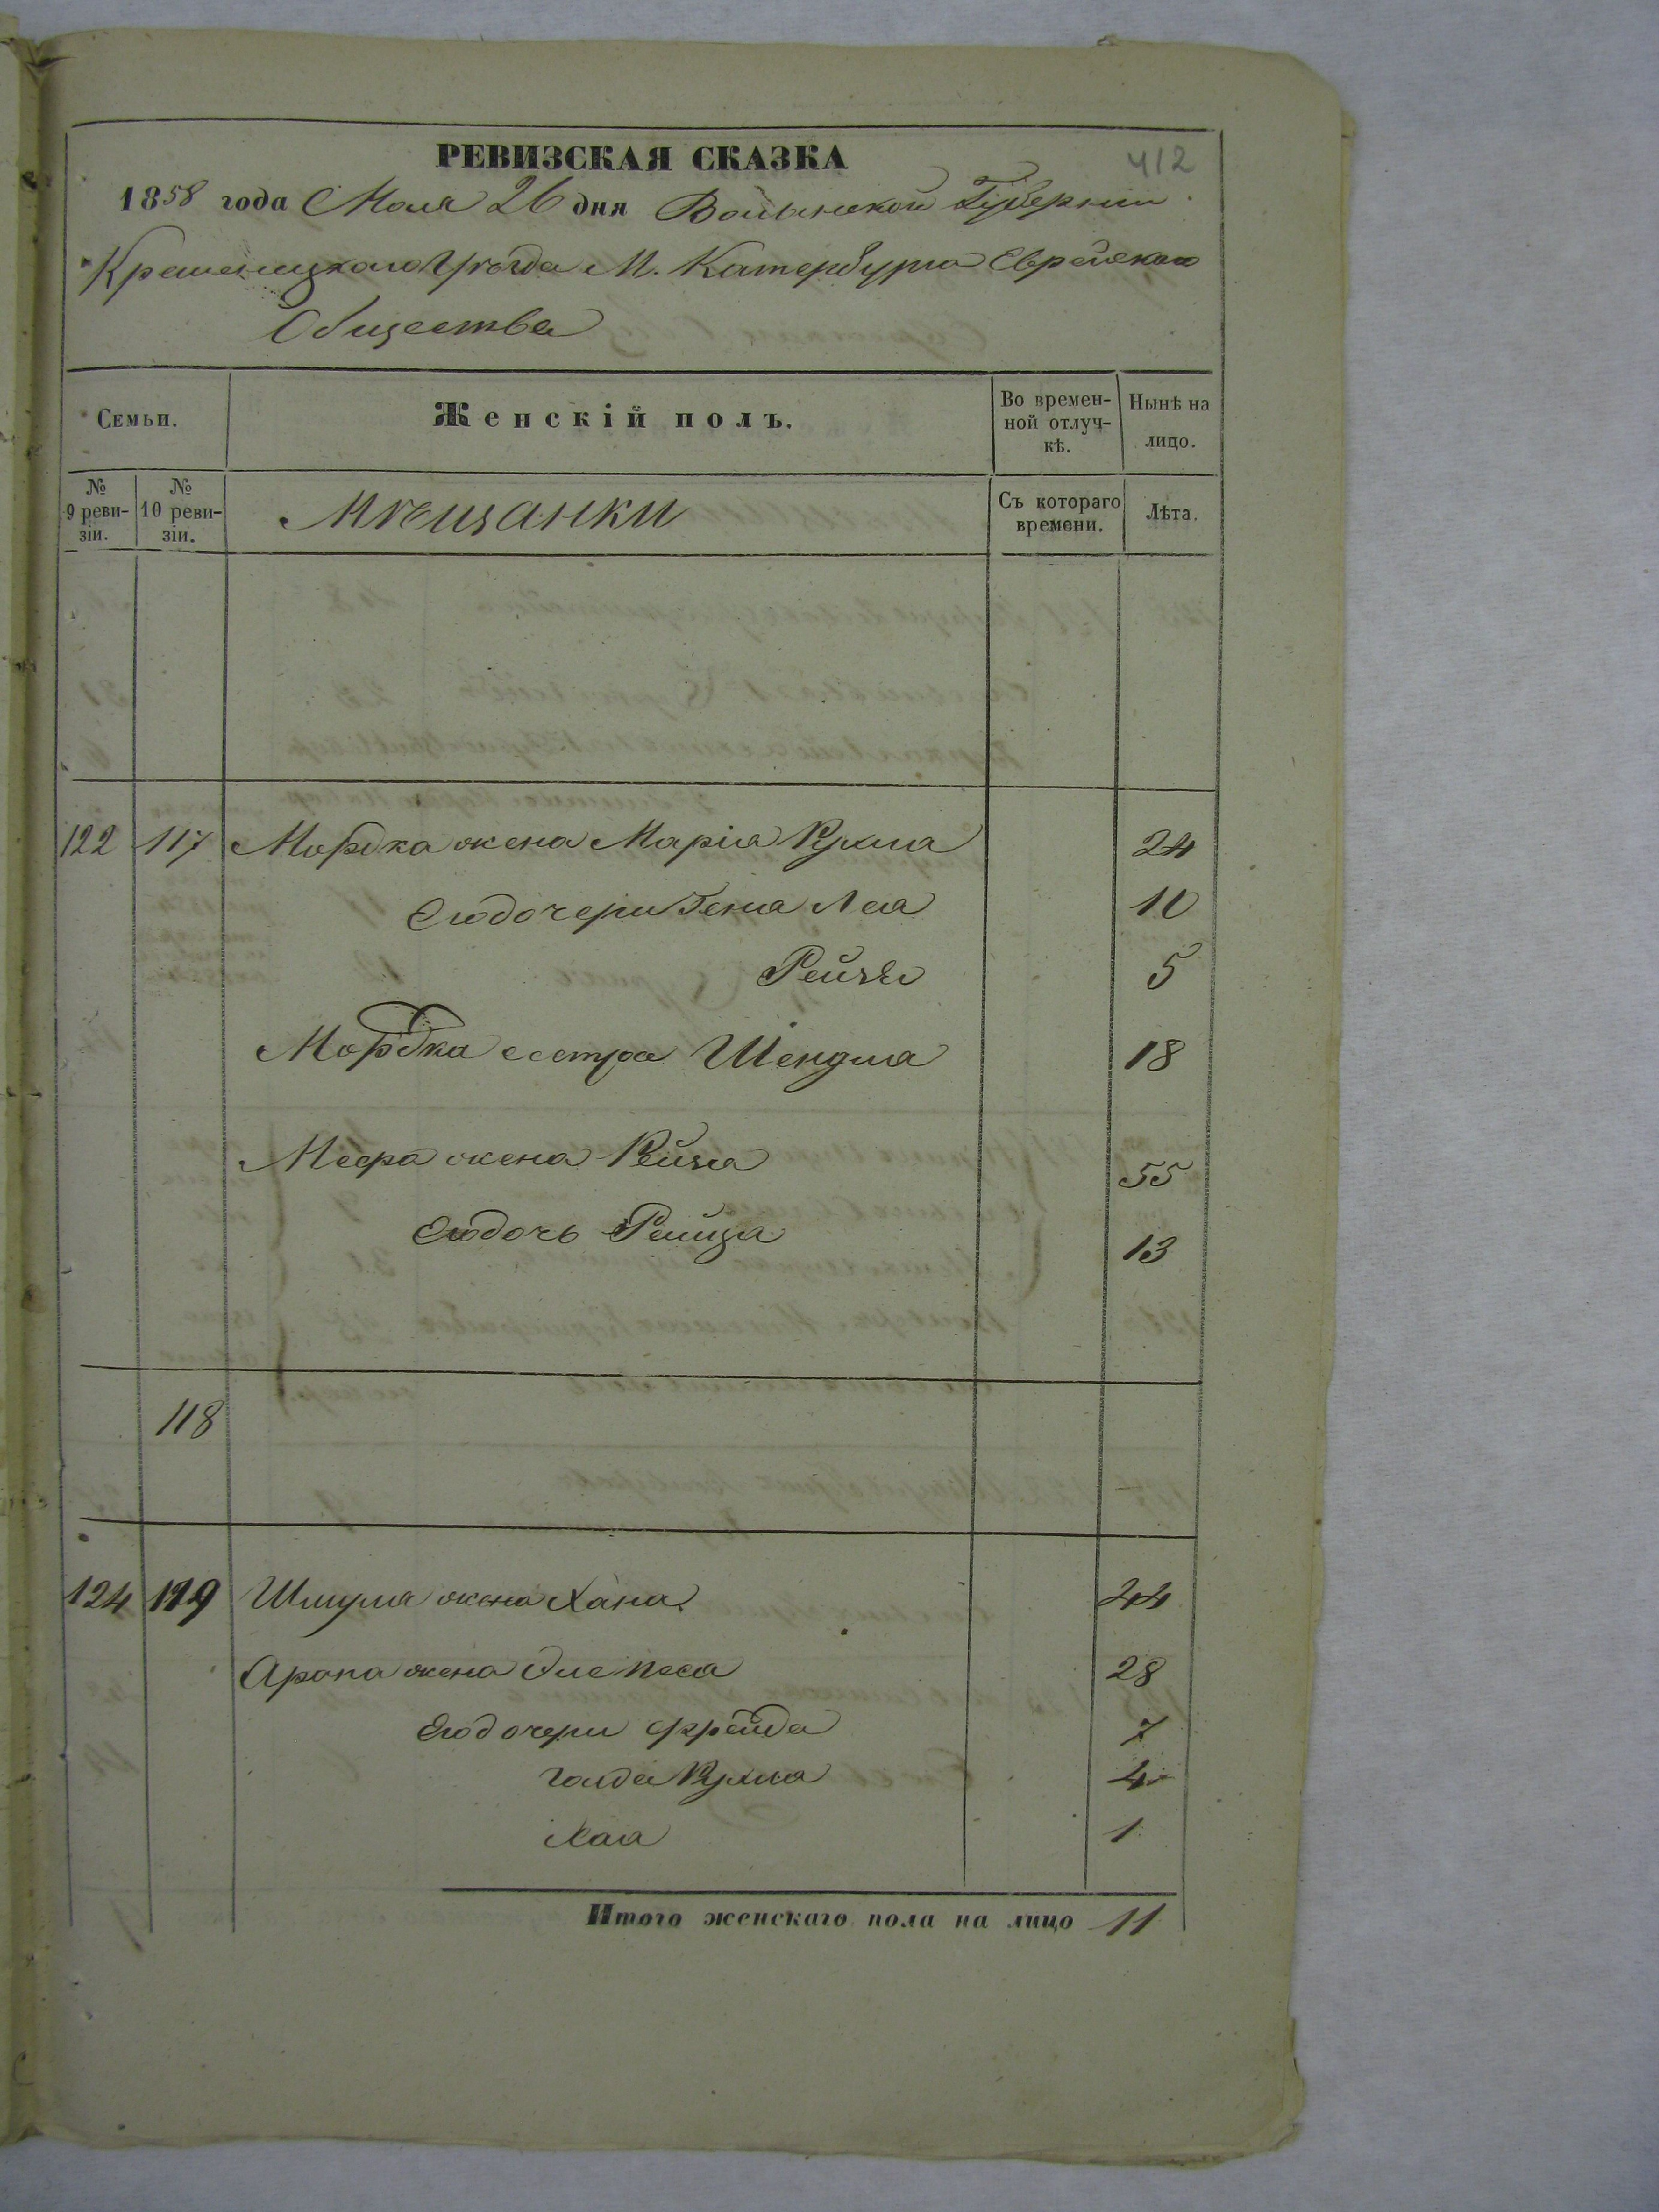 412
РЕВИЗСКАЯ СКАЗКА
1858 года Мая 26 дня Волынской Губерніи
Кременецкаго Уѣзда М. Катербурга Еврейскаго
Общества
Семьи.
Женскій полъ.
Во времен-
ной отлуч-
кѣ.
Нынѣ на
лицо.
№
9 реви-
зіи.
№
10 реви-
зіи.
Мѣщанки
Съ котораго
времени.
Лѣта.
122 117 Мордка жена Марія Рухля 24
Его дочери Геня Лея 10
Рейзя 5
Мордка сестра Шендля 18
жена Рейзя 55
Его дочь 13
118
124 119 Шмуля жена Хана 44
Арона жена Эле Песя 28
Его дочери Фрейда 7
Голда Рухля 4
Хая 1
Итого женскаго пола на лицо 11